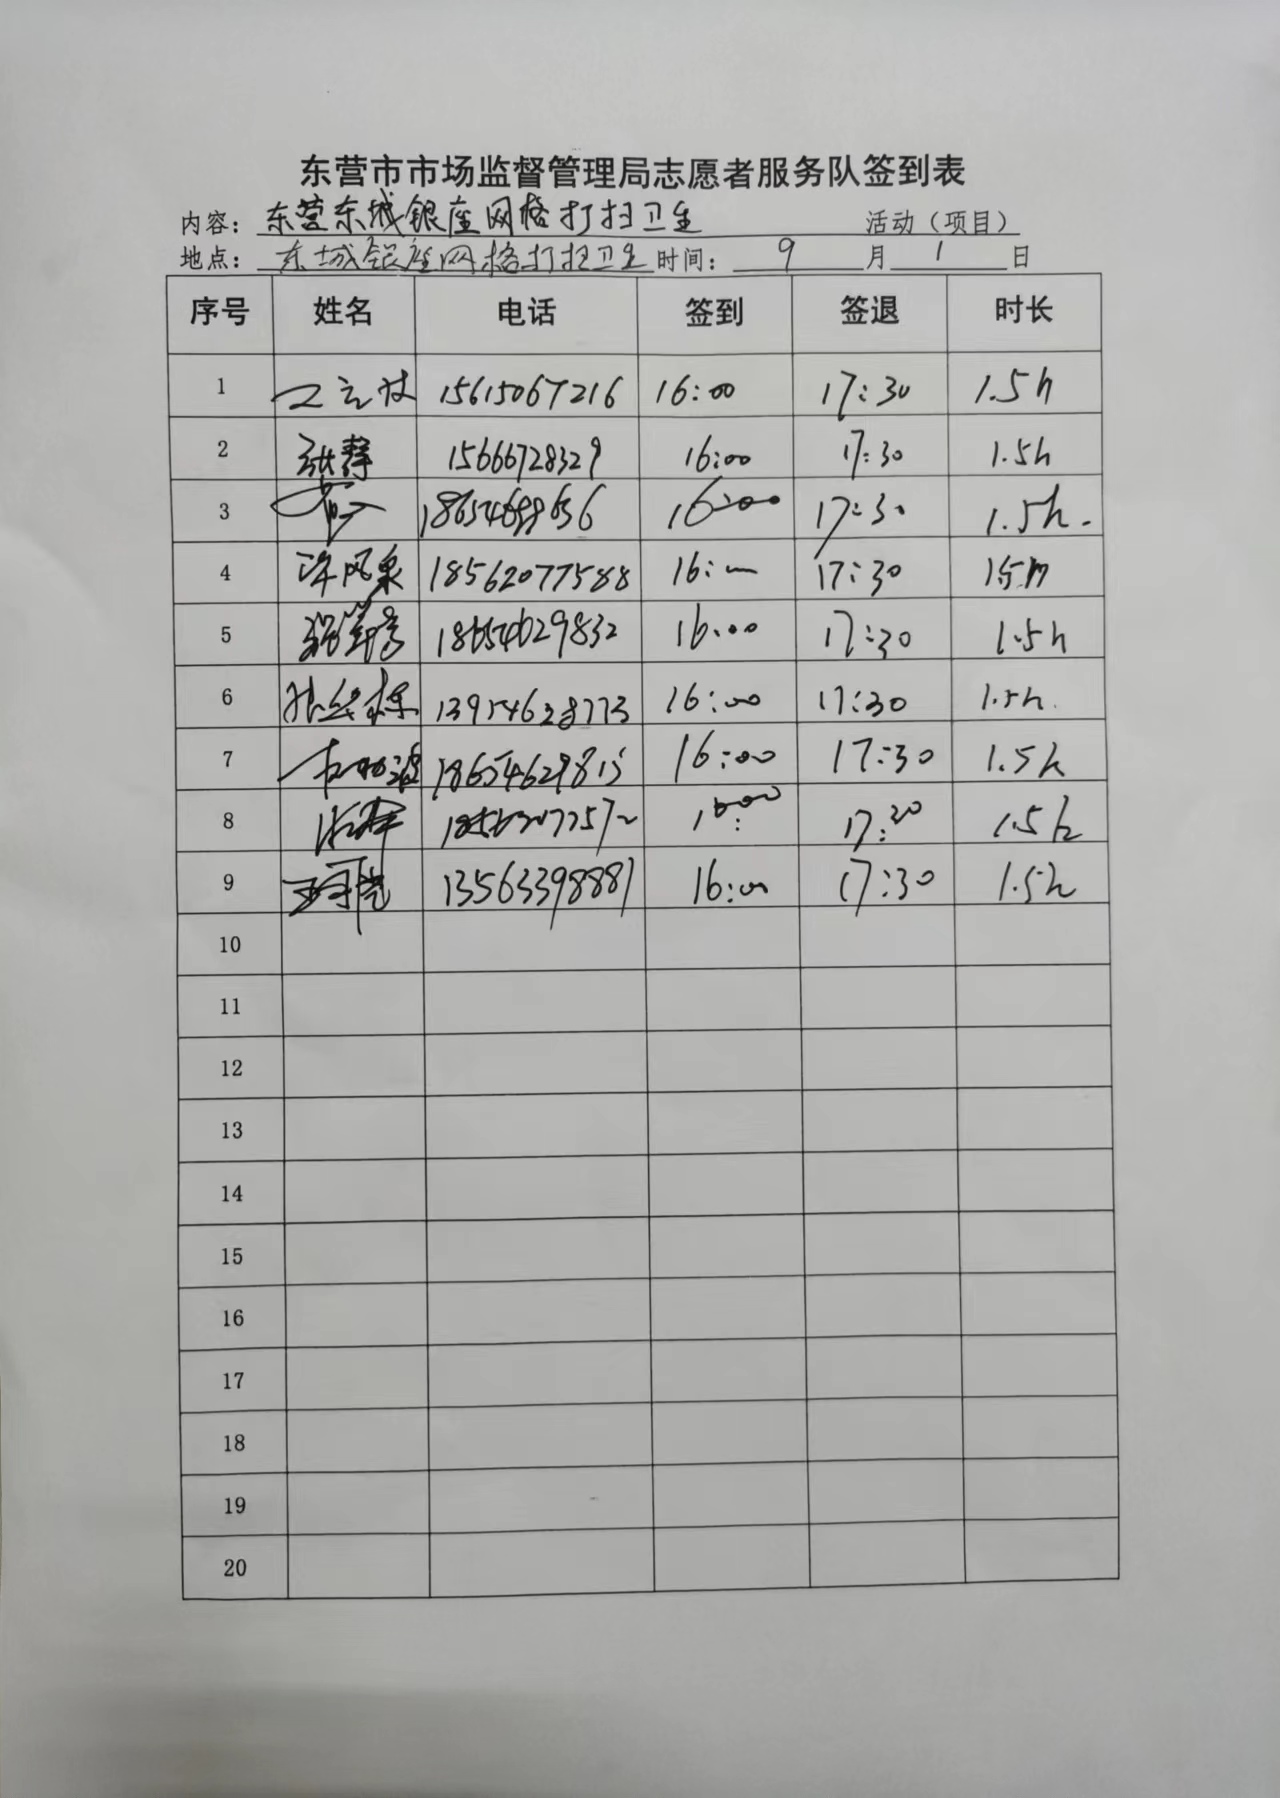 东营市市场监督管理局志愿者服务队签到表
内容：东营东城银座网格打扫卫生 活动（项目）
地点：东城银座网格打扫卫生 时间： 9 月 1 日
序号 姓名 电话 签到 签退 时长
1 15615067216 16:00 17:30 1.5h
2 张静 15666728329 16:00 17:30 1.5h
3 16:00 17:30 1.5h.
4 许风泉 18562077588 16:00 17:30 1.5h
5 18654629832 16:00 17:30 1.5h
6 13954628773 16:00 17:30 1.5h.
7 18654629815 16:00 17:30 1.5h
8 16:00 17:30 1.5h
9 13563398881 16:00 17:30 1.5h
10
11
12
13
14
15
16
17
18
19
20